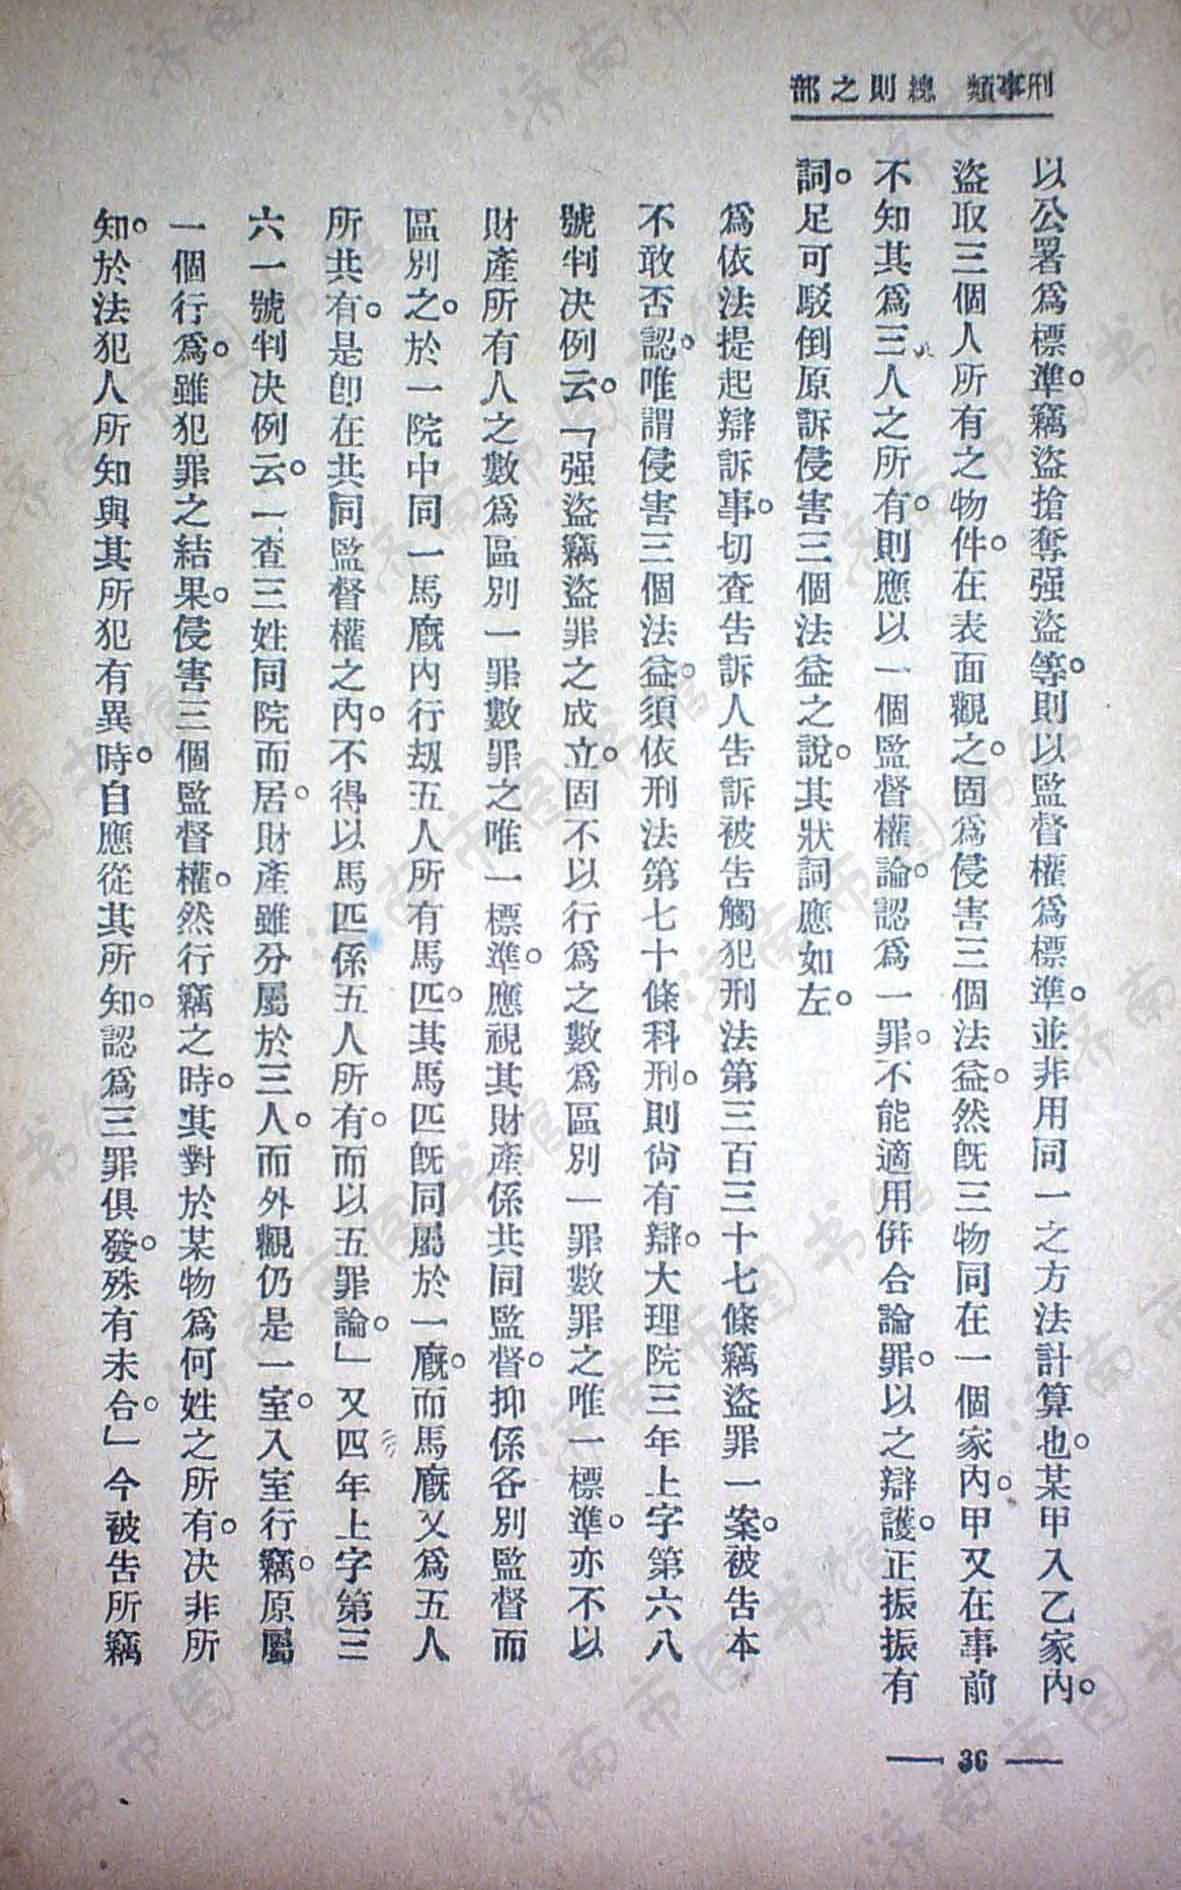 刑事類 總則之部
以公署爲標準。竊盜搶奪强盜等。則以監督權爲標準。並非用同一之方法計算也。某甲入乙家內。
盜取三個人所有之物件。在表面觀之。固爲侵害三個法益。然既三物同在一個家內。甲又在事前
不知其爲三人之所有。則應以一個監督權論。認爲一罪。不能適用併合論罪。以之辯護。正振振有
詞。足可駁倒原訴侵害三個法益之說。其狀詞應如左。
爲依法提起辯訴事。切查告訴人告訴被告觸犯刑法第三百三十七條竊盜罪一案。被告本
不敢否認。唯謂侵害三個法益。須依刑法第七十條科刑。則尙有辯。大理院三年上字第六八
號判决例云。「强盜竊盜罪之成立。固不以行爲之數爲區別一罪數罪之唯一標準。亦不以
財產所有人之數爲區別一罪數罪之唯一標準。應視其財產係共同監督。抑係各別監督而
區別之。於一院中同一馬廐內行刼五人所有馬匹。其馬匹既同屬於一廐。而馬廐又爲五人
所共有。是卽在共同監督權之內。不得以馬匹係五人所有。而以五罪論。」又四年上字第三
六一號判决例云。「查三姓同院而居。財產雖分屬於三人。而外觀仍是一室。入室行竊。原屬
一個行爲。雖犯罪之結果。侵害三個監督權。然行竊之時。其對於某物爲何姓之所有。决非所
知。於法犯人所知與其所犯有異時。自應從其所知。認爲三罪俱發。殊有未合。」今被告所竊
— 36 —
济南市图书馆